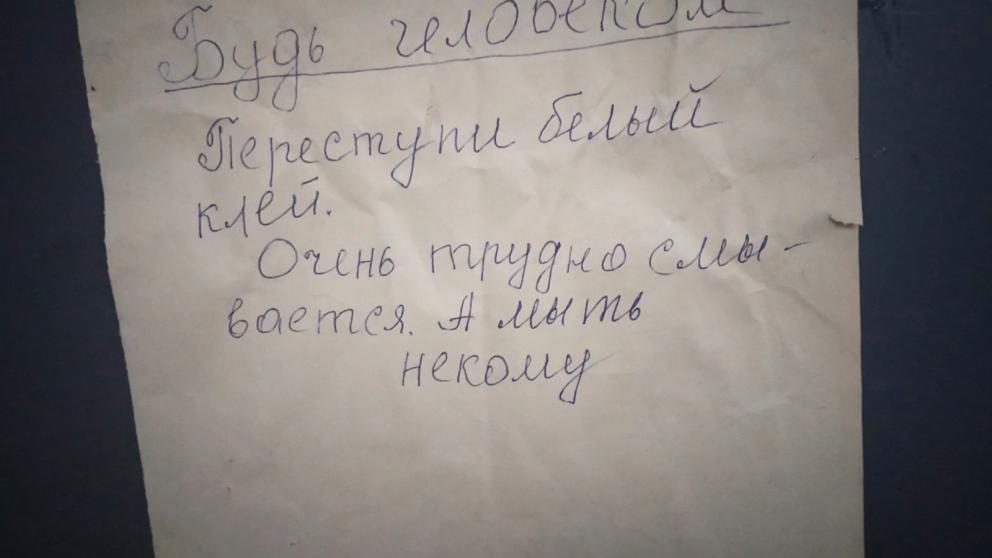 Будь человеком
Переступи белый
клей.
Очень трудно смы-
вается. А мыть
некому